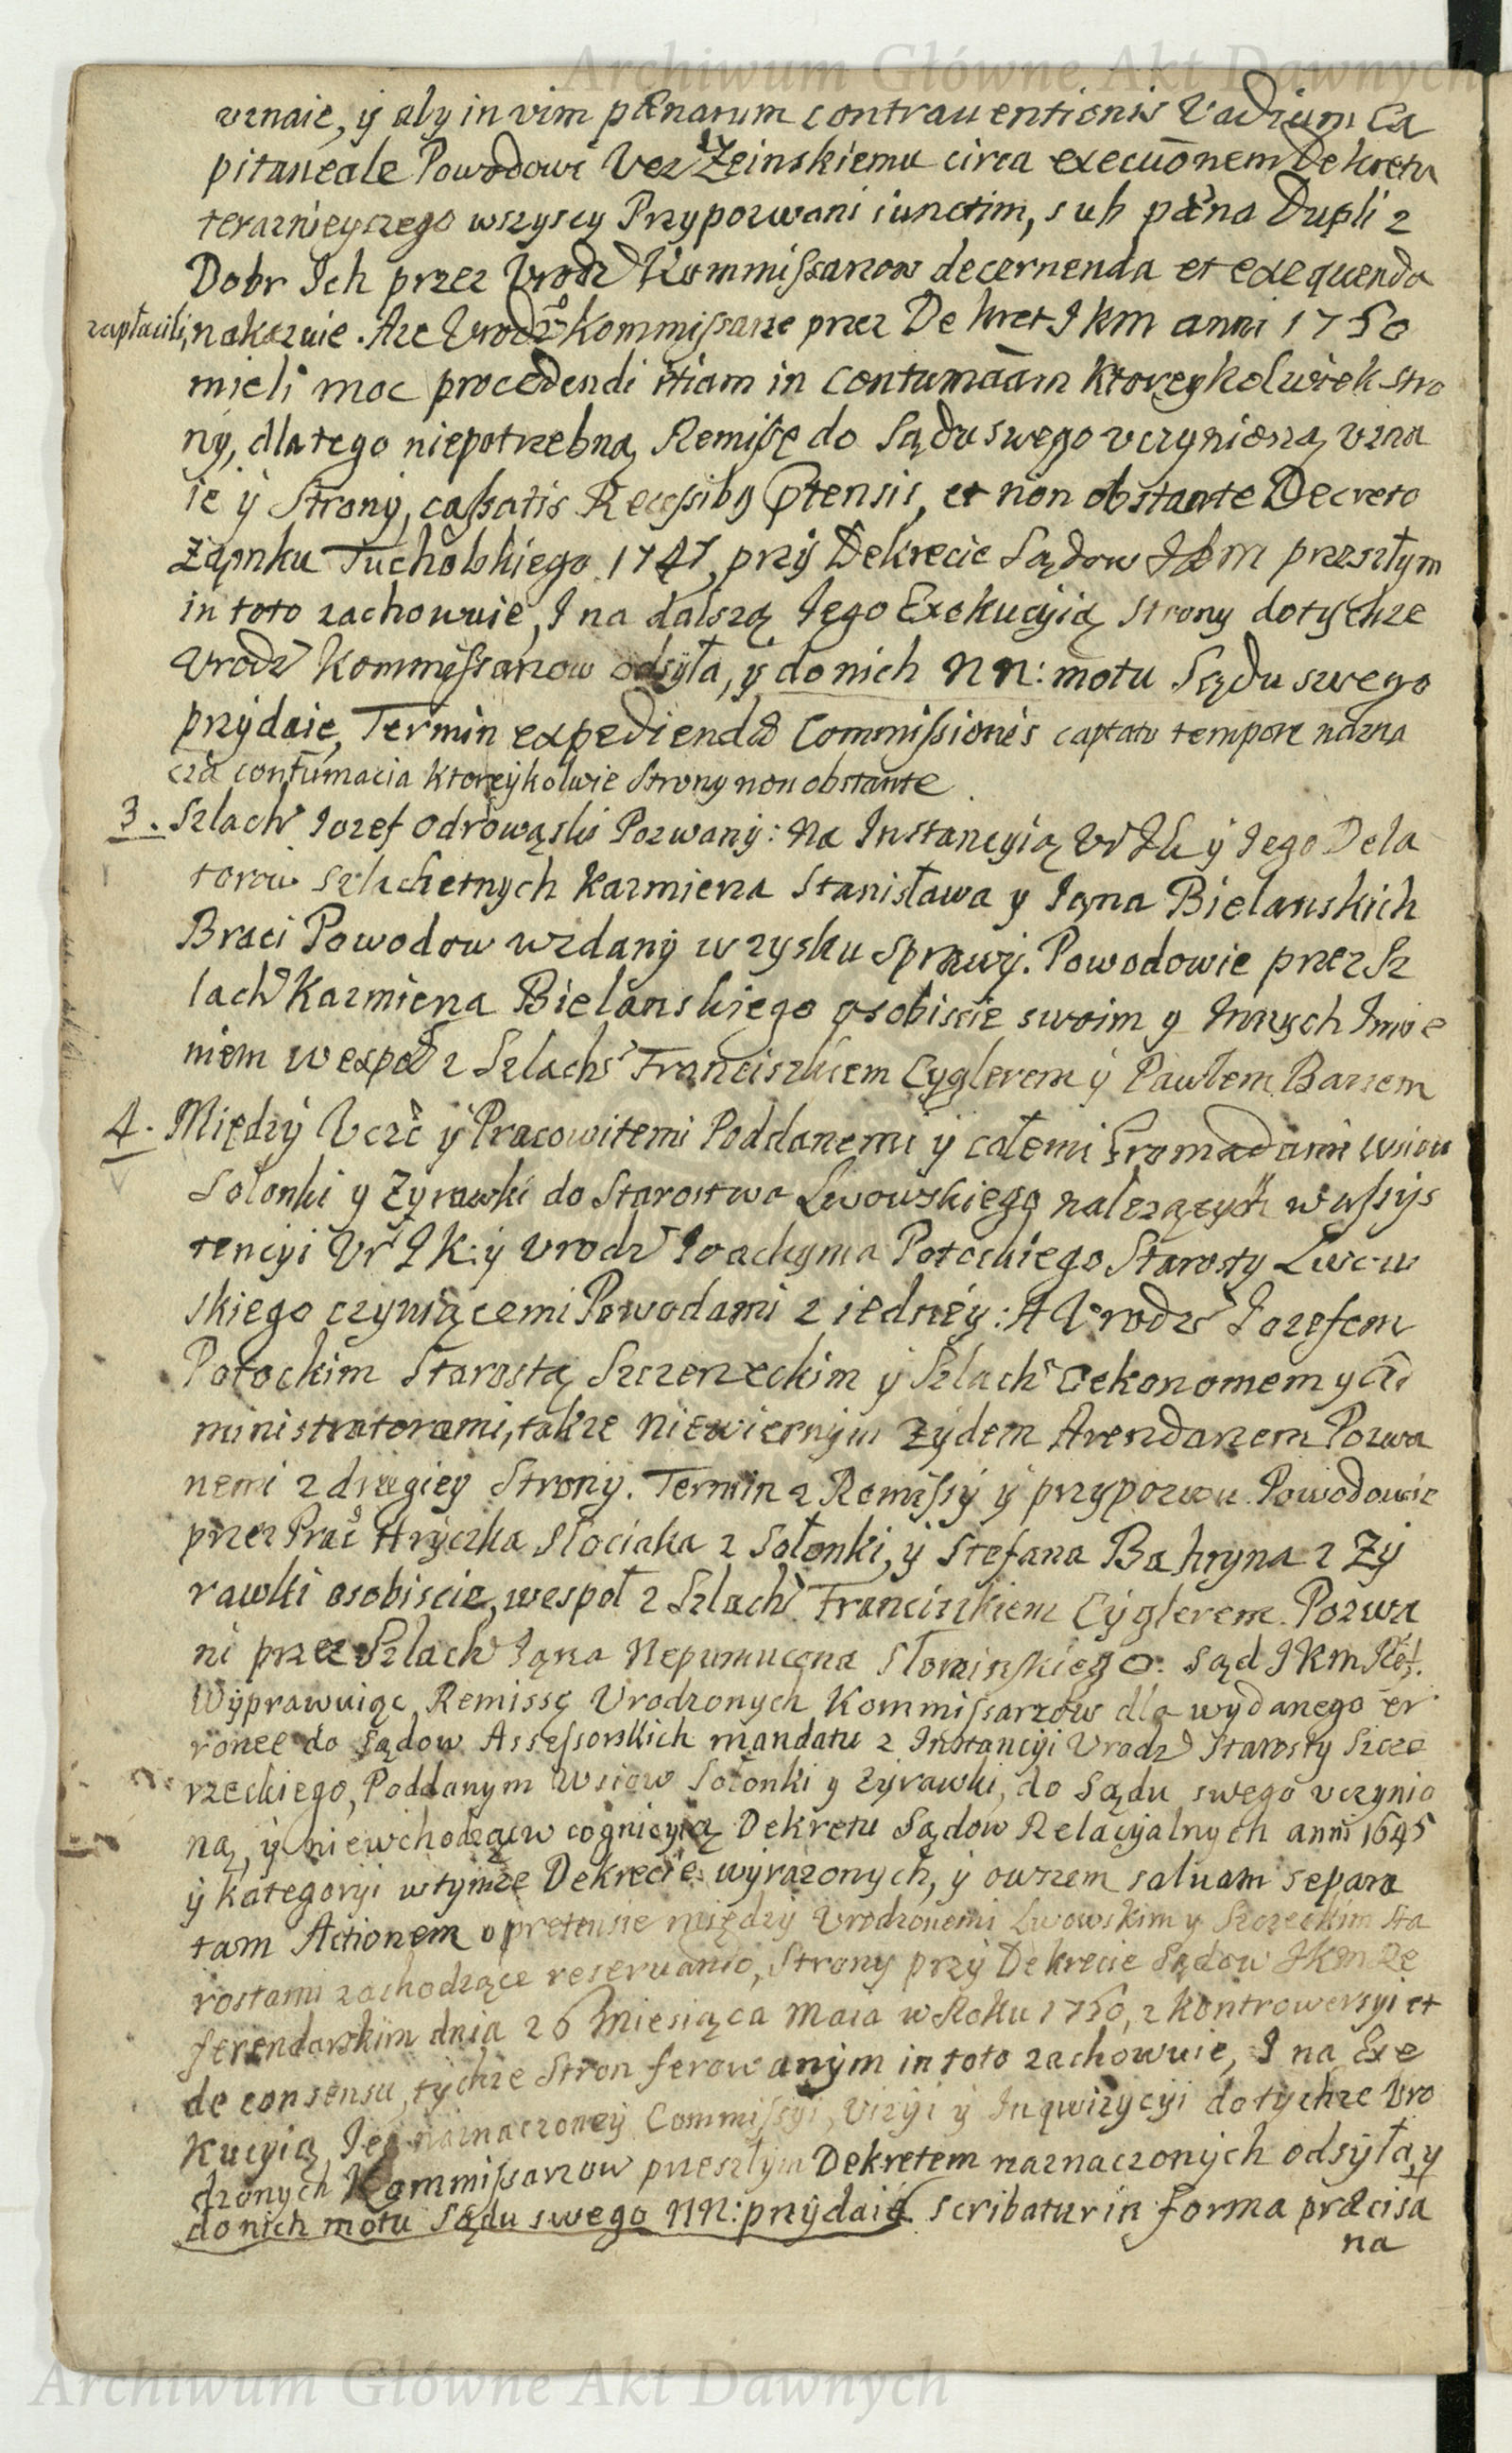 Archiwum Główne Akt Dawnych
uznaie, ÿ aby in vim pænarum contraventionis Vadium Ca
pitaneale Powodowi Ucz Zeinskiemu circa execuōnem Dekretu
teraznieyszego wszyscy Przypozwani iunctim, sub pæna Dupli z
Dobr Ich przez Urodz Kommissarzow decernenda et exequenda
zapłacili, nakazuie. Aze Urodz Kommissarze przez Dekret JKm anni 1750
mieli moc procedendi etiam in Contumaām ktoreykolwiek stro
nÿ, dla tego niepotrzebną Remisę do Sądu swego uczynioną uzna
ie ÿ Stronÿ, cassatis Recessibꝯ Ptensis, et non obstante Decreto
Zamku Tucholskiego 1747, przÿ Dekrecie Sądow JKm przeszłym
in toto zachowuie, I na dalszą Iego Exekucyią Strony do tychze
Urodz Kommissarzow odsyła, ÿ do nich NN: motu Sądu swego
przÿdaie, Termin expediendæ Commissionis captato tempore nazna
cza contumacia ktoreykolwie Strony non obstante
3. Szlach Iozef Odrowąski Pozwanÿ: Na Instancyią Ur IK ÿ Iego Dela
torow Szlachetnych Kazmierza Stanisława y Iąna Bielanskich
Braci Powodow wzdanÿ w zysku sprawÿ. Powodowie przez Sz
lach Kazmierza Bielanskiego osobiscie swoim y Innych Imie
niem wespoł z Szlach Franciszkiem Cyglerem ÿ Pawłem Barzem
4. Międzÿ Ucżc ÿ Pracowitemi Poddanemi ÿ całemi Gromadami wsiow
Solonki y Zyrawki do Starostwa Lwowskiego nalezących w assÿs
tencyi Ur I K: ÿ Urodz Ioachyma Potockiego Starosty Lwow
skiego czyniącemi Powodami z iednéy: A Urodz Iozefem
Potockim Starostą Szczerzeckim ÿ Szlach Oekonomem y Ad
ministratorami, także Niewiernÿm Zÿdem Arendarzem Pozwa
nemi z drugiey Stronÿ. Termin z Remissÿ ÿ przÿpozwu. Powodowie
przez Prac Hrÿczka Słociaka z Sołonki, ÿ Stefana Bahryna z Zÿ
rawki osobiscie, wespoł z Szlach Franciszkiem Cÿglerem. Pozwa
ni przez Szlach Iąna Nepumucena Słominskiego. Sąd JKm Rof.
Wÿprawuiąc Remissę Urodzonych Kommissarzow dla wydanego er
ronee do Sądow Assessorskich mandatu z Instancÿi Urodz Starosty Szcze
rzeckiego, Poddanym Wsiow Sołonki y Zyrawki, do Sądu swego uczynio
ną, ÿ niewchodząc w cognicyią Dekretu Sądow Relacyialnych anni 1645
ÿ kategoryi w tymze Dekrecie wyrazonych, ÿ owszem saluam separa
tam Actionem o pretensie międzÿ Urodzonemi Lwowskim y Szczeckim Sta
rostami zachodzące reservando, Strony przÿ Dekrecie Sądow JKm Re
ferendarskim dnia 26 Miesiąca Maia w Roku 1750, z kontrowersyi et
de consensu tychze Stron ferowanÿm in toto zachowuie, I na Exe
kucyią Ieÿ naznaczoneÿ Commissÿi, Vizÿi ÿ Inqwizycyi do tychze Uro
dzonych Kommissarzow przeszłÿm Dekretem naznaczonych odsyła, y
do nich motu Sądu swego NN: przÿdaie. Scribatur in forma præcisa
na
Archiwum Główne Akt Dawnych